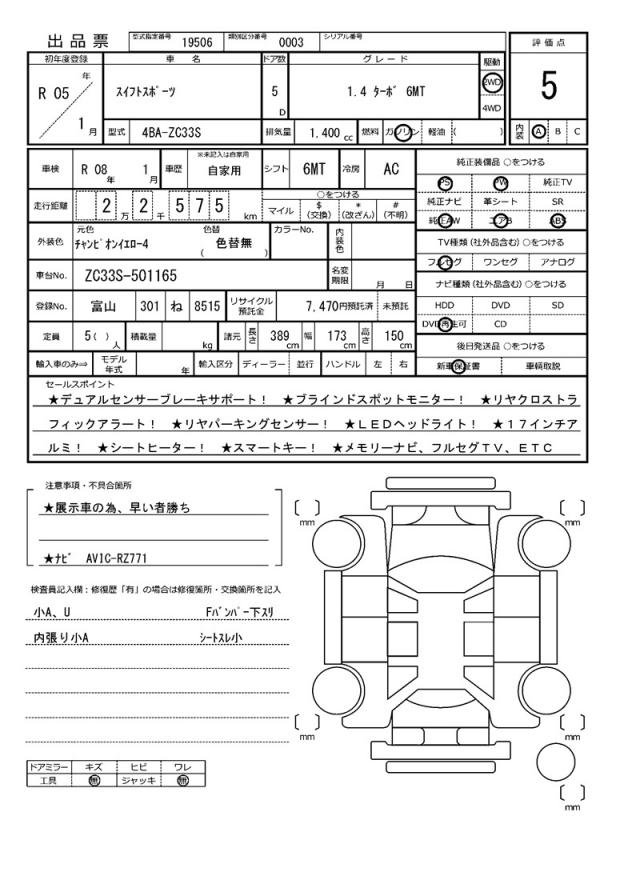 出品票 型式指定番号 19506 類別区分番号 0003 シリアル番号
評価点
5
内装 A B C
初年度登録 車名 ドア数 グレード 駆動
R 05 年 1 月 スイフトスポーツ 5 D 1.4 ターボ 6MT 2WD 4WD
型式 4BA-ZC33S 排気量 1.400 cc 燃料 ガソリン 軽油 ( )
車検 R 08 年 1 月 車歴 ※未記入は自家用 自家用 シフト 6MT 冷房 AC
走行距離 2 万 2 千 5 7 5 km ○をつける マイル $(交換) *(改ざん) #(不明)
外装色 元色 チャンピオンイエロー4 色替 色替無 ( ) カラーNo. 内装色
車台No. ZC33S-501165 名変期限 月 日
登録No. 富山 301 ね 8515 リサイクル預託金 7,470円預託済 未預託
定員 5( ) 人 積載量 kg 諸元 長さ 389 cm 幅 173 cm 高さ 150 cm
輸入車のみ⇒ モデル年式 年 輸入区分 ディーラー 並行 ハンドル 左 右
純正装備品 ○をつける
PS PW 純正TV
純正ナビ 革シート SR
純正AW エアB ABS
TV種類 (社外品含む) ○をつける
フルセグ ワンセグ アナログ
ナビ種類 (社外品含む) ○をつける
HDD DVD SD
DVD再生可 CD
後日発送品 ○をつける
新車保証書 車輌取説
セールスポイント
★デュアルセンサーブレーキサポート! ★ブラインドスポットモニター! ★リヤクロストラ
フィックアラート! ★リヤパーキングセンサー! ★LEDヘッドライト! ★17インチア
ルミ! ★シートヒーター! ★スマートキー! ★メモリーナビ、フルセグTV、ETC
注意事項・不具合箇所
★展示車の為、早い者勝ち
★ナビ AVIC-RZ771
検査員記入欄:修復歴「有」の場合は修復箇所・交換箇所を記入
小A、U Fバンパー下スリ
内張り小A シートスレ小
ドアミラー キズ ヒビ ワレ
工具 無 ジャッキ 無
[ ] mm [ ] mm
[ ] mm [ ] mm
[ ] mm